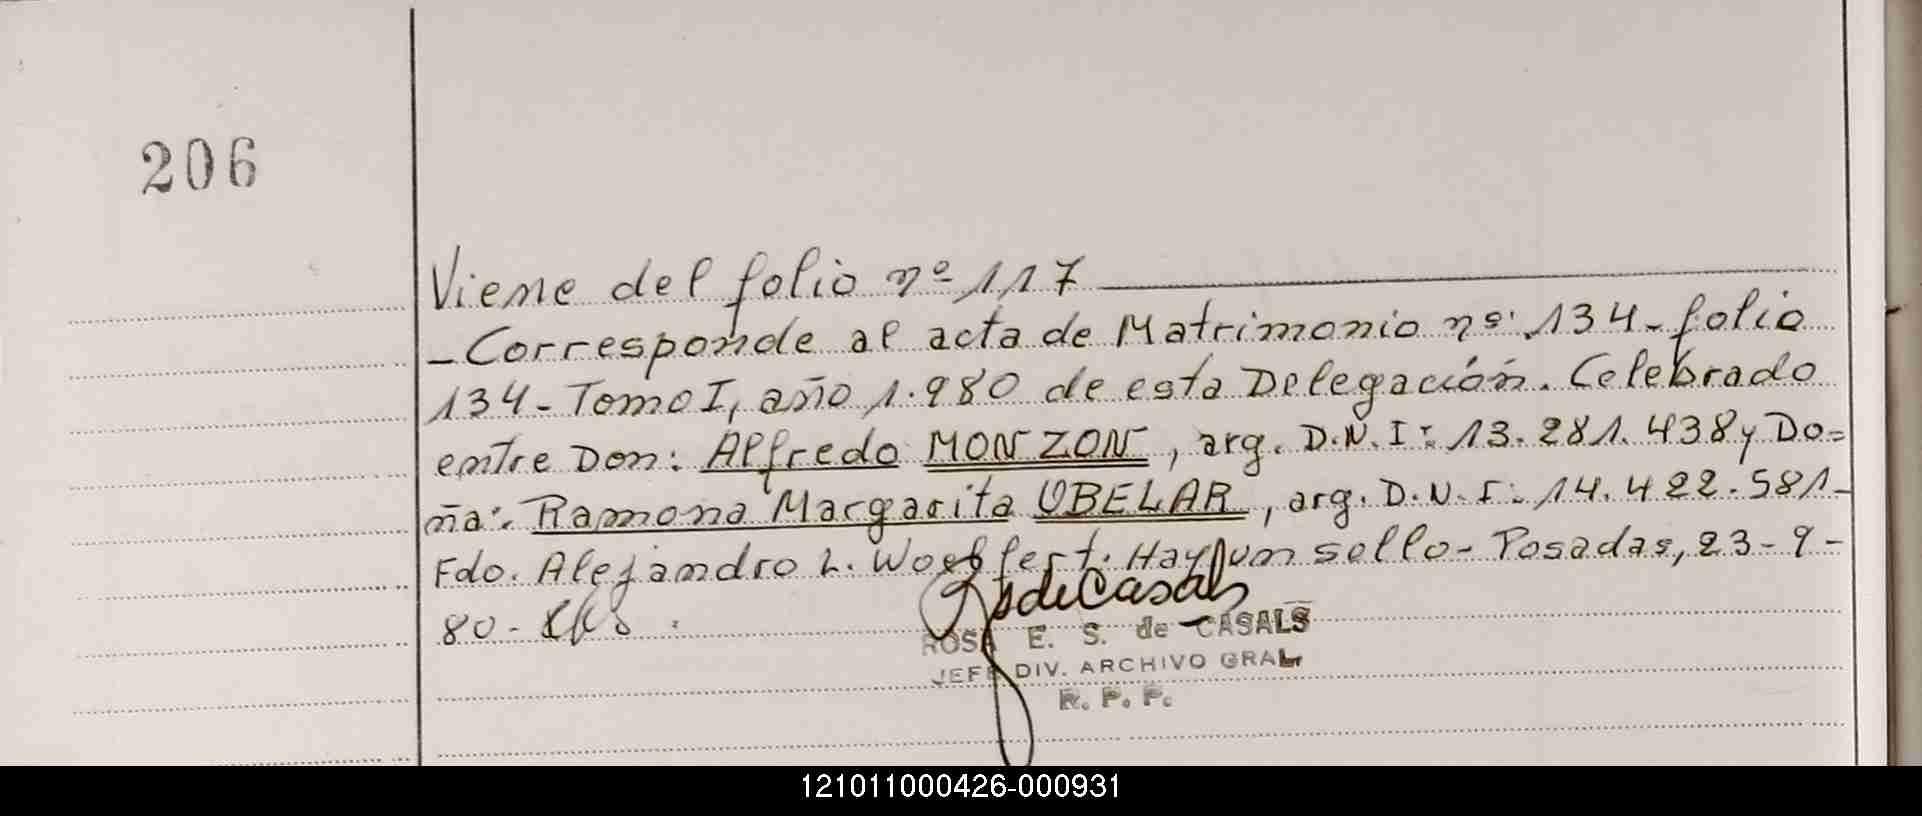 206
Viene del folio nº 117
- Corresponde al acta de Matrimonio nº: 134 - folio
134 - Tomo I, año 1.980 de esta Delegación. Celebrado
entre Don: Alfredo MONZON, arg. D.N.I: 13.281.438 y Do=
ña: Ramona Margarita UBELAR, arg. D.N.I: 14.422.581-
Fdo. Alejandro L. Hay un sello - Posadas, 23-9-
80-
ROSA E. S. de CASALS
JEFE DIV. ARCHIVO GRAL
R. P. P.
121011000426-000931